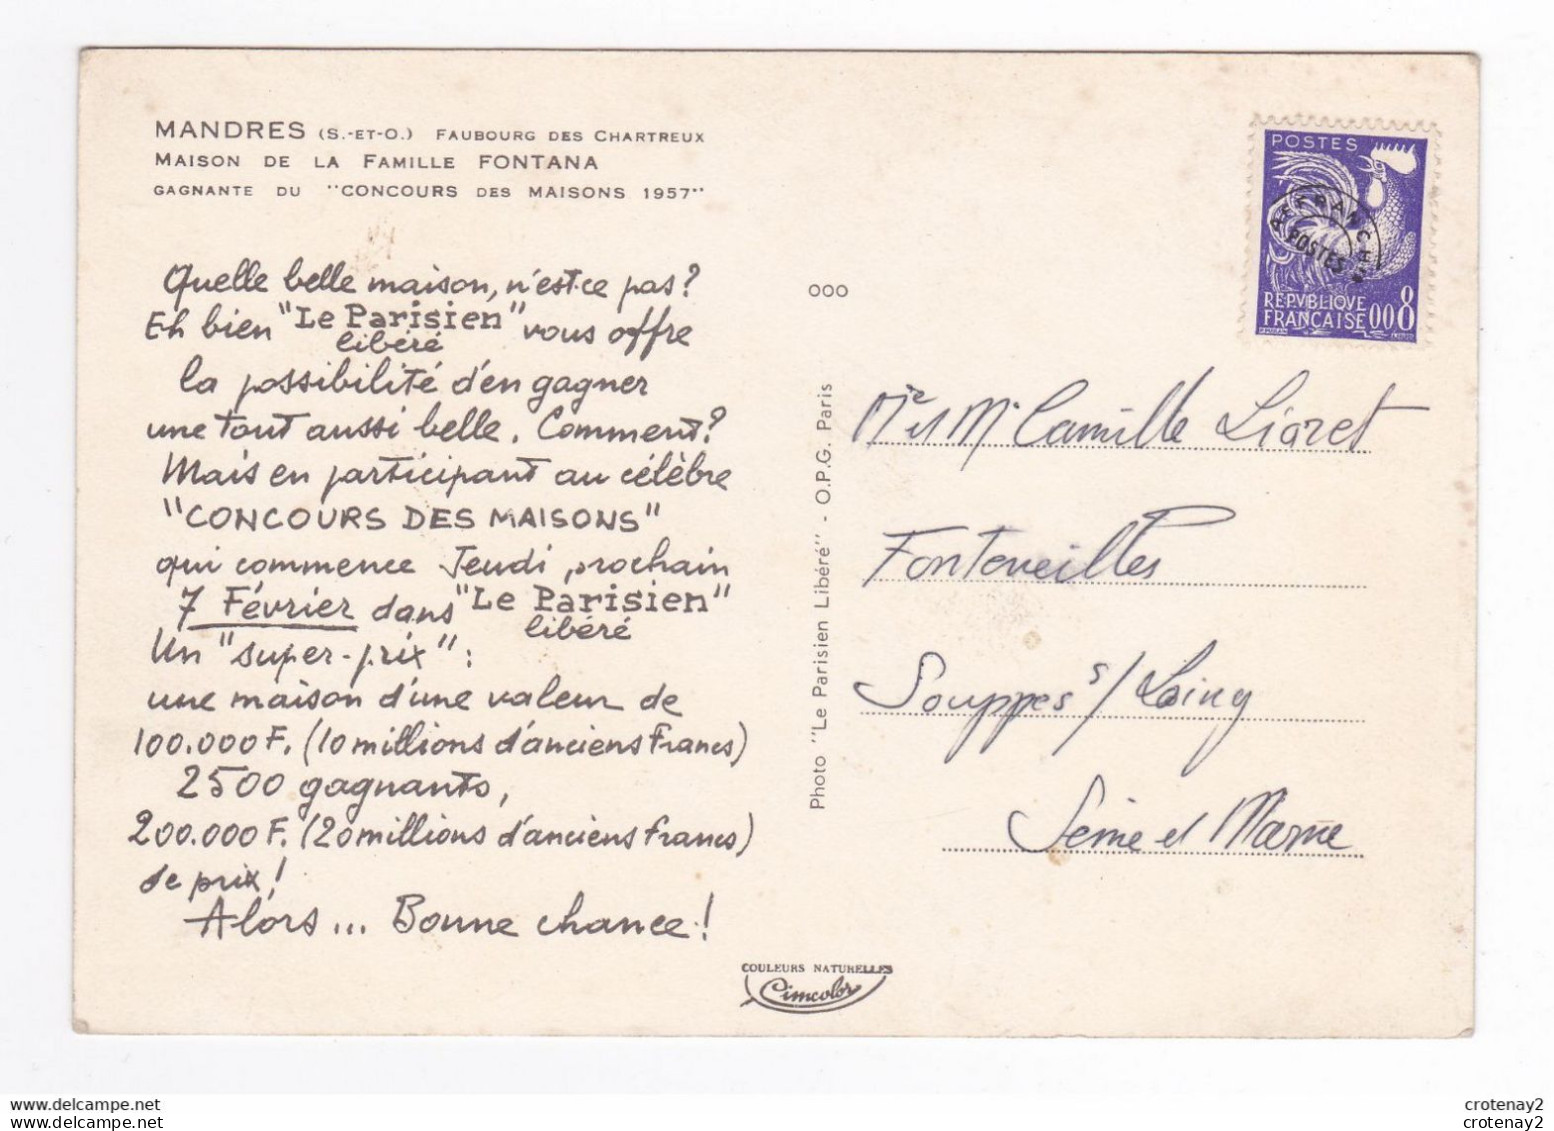 MANDRES (S.-ET-O.) FAUBOURG DES CHARTREUX
MAISON DE LA FAMILLE FONTANA
GAGNANTE DU "CONCOURS DES MAISONS 1957"
Quelle belle maison, n'est-ce pas?
Eh bien "Le Parisien" vous offre
libéré
la possibilité d'en gagner
une tout aussi belle. Comment?
Mais en participant au célèbre
"CONCOURS DES MAISONS"
qui commence Jeudi prochain
7 Février dans "Le Parisien"
libéré
Un "super-prix":
une maison d'une valeur de
100.000 F. (10 millions d'anciens francs)
2500 gagnants,
200.000 F. (20 millions d'anciens francs)
de prix!
Alors... Bonne chance!
COULEURS NATURELLES
Cimcolor
000
Photo "Le Parisien Libéré" - O.P.G. Paris
POSTES
AFFRANCHts
POSTES
REPVBLIQVE
FRANÇAISE 008
Mr et Me Camille Lioret
Fonteneilles
Souppes s/ Loing
Seine et Marne
delcampe.net
delcampe.net
crotenay2
crotenay2